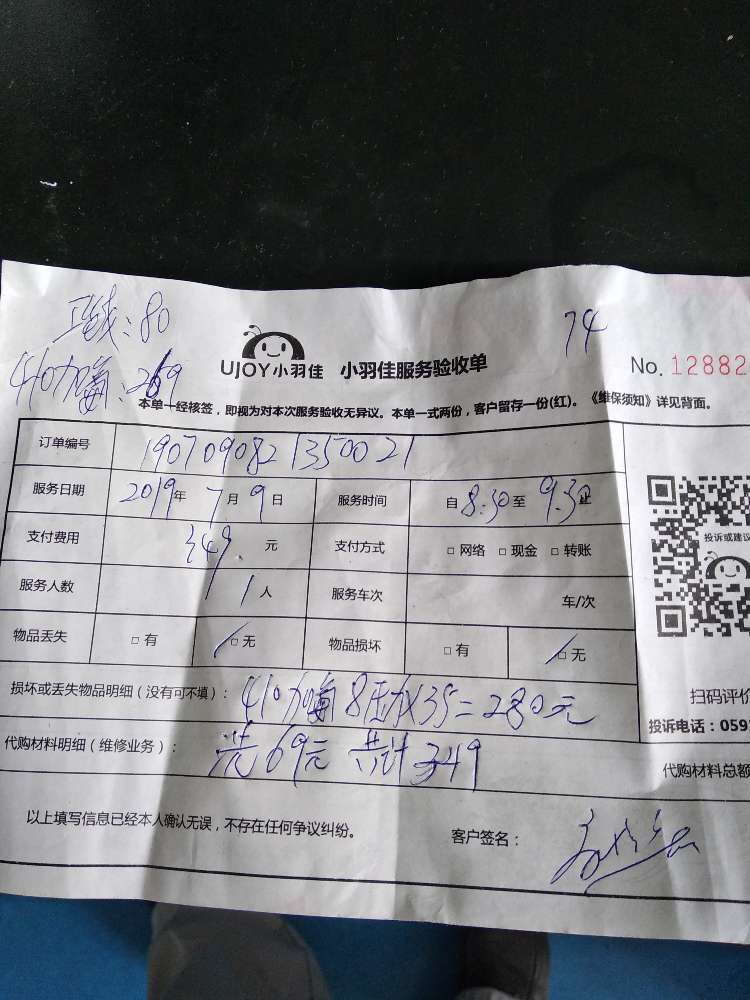 : 80
74
UJOY小羽佳 小羽佳服务验收单
No. 12882
410加氟: 269
本单一经核签，即视为对本次服务验收无异议。本单一式两份，客户留存一份(红)。《维保须知》详见背面。
订单编号 1907090821350021
服务日期 2019年 7月9日 服务时间 自8:30至9:30止
支付费用 349. 元 支付方式 □ 网络 □ 现金 □ 转账
服务人数 1人 服务车次 车/次
物品丢失 □ 有 □ 无 物品损坏 □ 有 □ 无
投诉或建议
扫码评价
损坏或丢失物品明细（没有可不填）： 410加氟8压力X35=280元
投诉电话：059
代购材料明细（维修业务）： 洗69元 共计349
代购材料总额
以上填写信息已经本人确认无误，不存在任何争议纠纷。 客户签名：